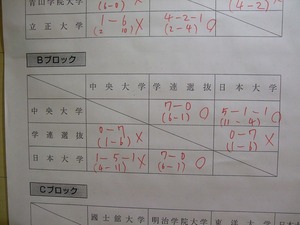 青山学院大学
(4-2)
立正大学 1-6 × 4-2-1 ○
(2-4)
Bブロック
中央大学 学連選抜 日本大学
中央大学 7-0 ○ 5-1-1 ○
(6-1) (11-4)
学連選抜 0-7 × 0-7 ×
(1-6) (1-6)
日本大学 1-5-1 × 7-0 ○
(4-11) (6-1)
Cブロック
國士舘大学 明治学院大学 東洋大学